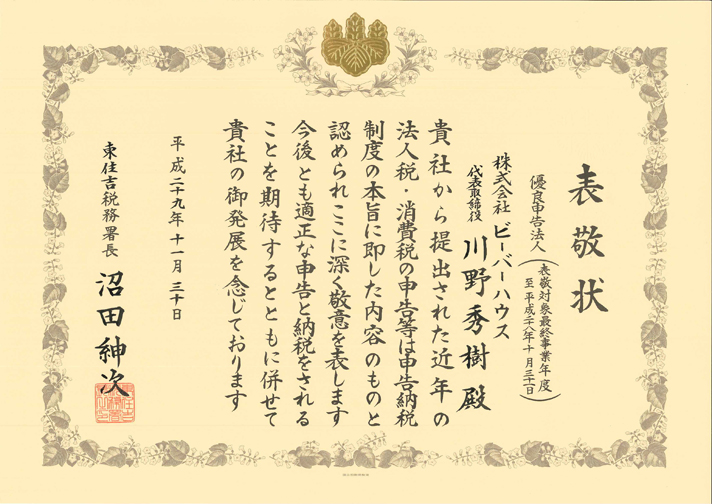 表敬状
優良申告法人
(表敬対象最終事業年度
至 平成二八年十月三十一日)
株式会社 ビーバーハウス
代表取締役 川野秀樹 殿
貴社から提出された近年の
法人税・消費税の申告等は申告納税
制度の本旨に即した内容のものと
認められここに深く敬意を表します
今後とも適正な申告と納税をされる
ことを期待するとともに併せて
貴社の御発展を念じております
平成二十九年 十一月 三十日
東住吉税務署長 沼田紳次